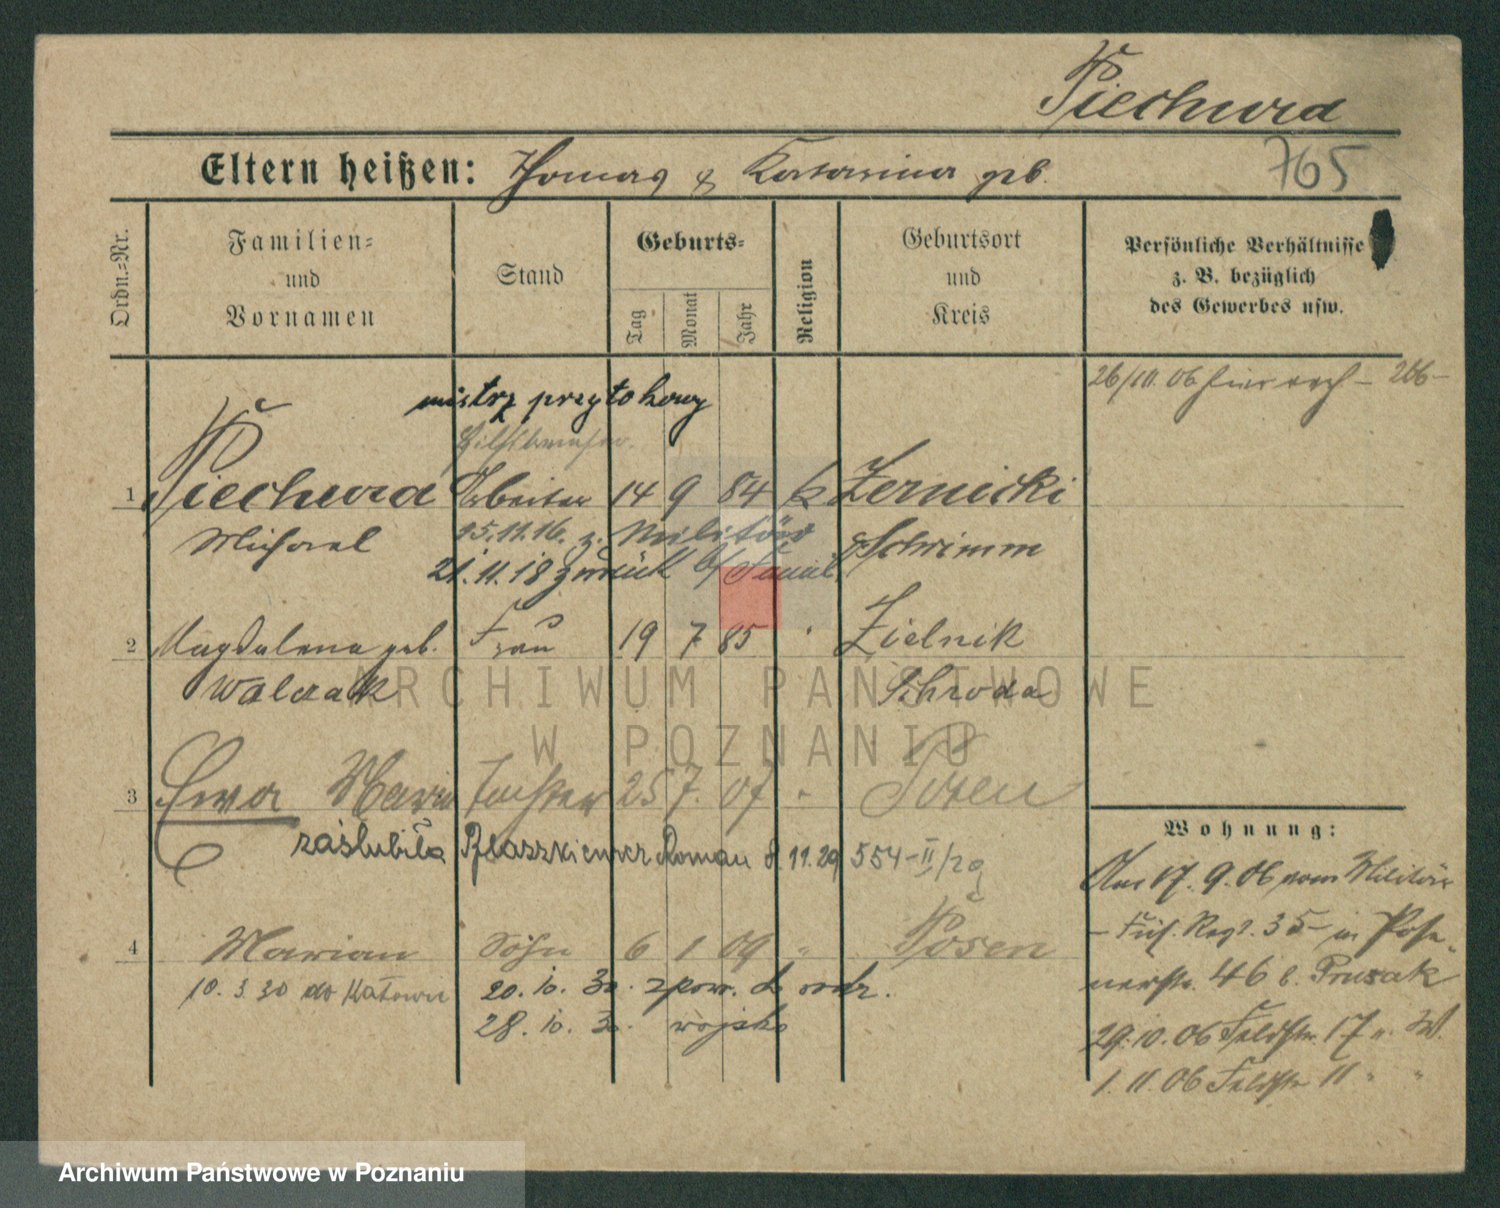 Piechura
Eltern heißen: Thomas & Katarina geb.
765
Ordn.-Nr.
Familien-
und
Vornamen
Stand
Geburts-
Tag
Monat
Jahr
Religion
Geburtsort
und
Kreis
Persönliche Verhältnisse
z. B. bezüglich
des Gewerbes usw.
26/10. 06
mistrz
1 Piechura Arbeiter 14 9 84 k Zernicki
Michael 15.11.16. z. Militär Schrimm
21.11.18 zurück b/ Famil.
2 Magdalena geb. Frau 19 7 85 " Zielnik
Walczak Schroda
3 Ewa Maria Tochter 25 7. 07 " Posen
zaślubiła Roman 8.11.29 554-II/29
4 Marian Sohn 6 1 09 " Posen
10. 3 30 do Katowic 20. 10. 30. z pow. do rodz.
28. 10. 30. wojsko
Wohnung:
Am 17. 9. 06 vom Militär
- Füs. Regt. 35 - in Pose
nerstr. 46 b. Prusak
29.10.06 Feldstr. 17 b. W.
1. 11. 06 Feldstr 11 " "
ARCHIWUM PAŃSTWOWE
W POZNANIU
Archiwum Państwowe w Poznaniu